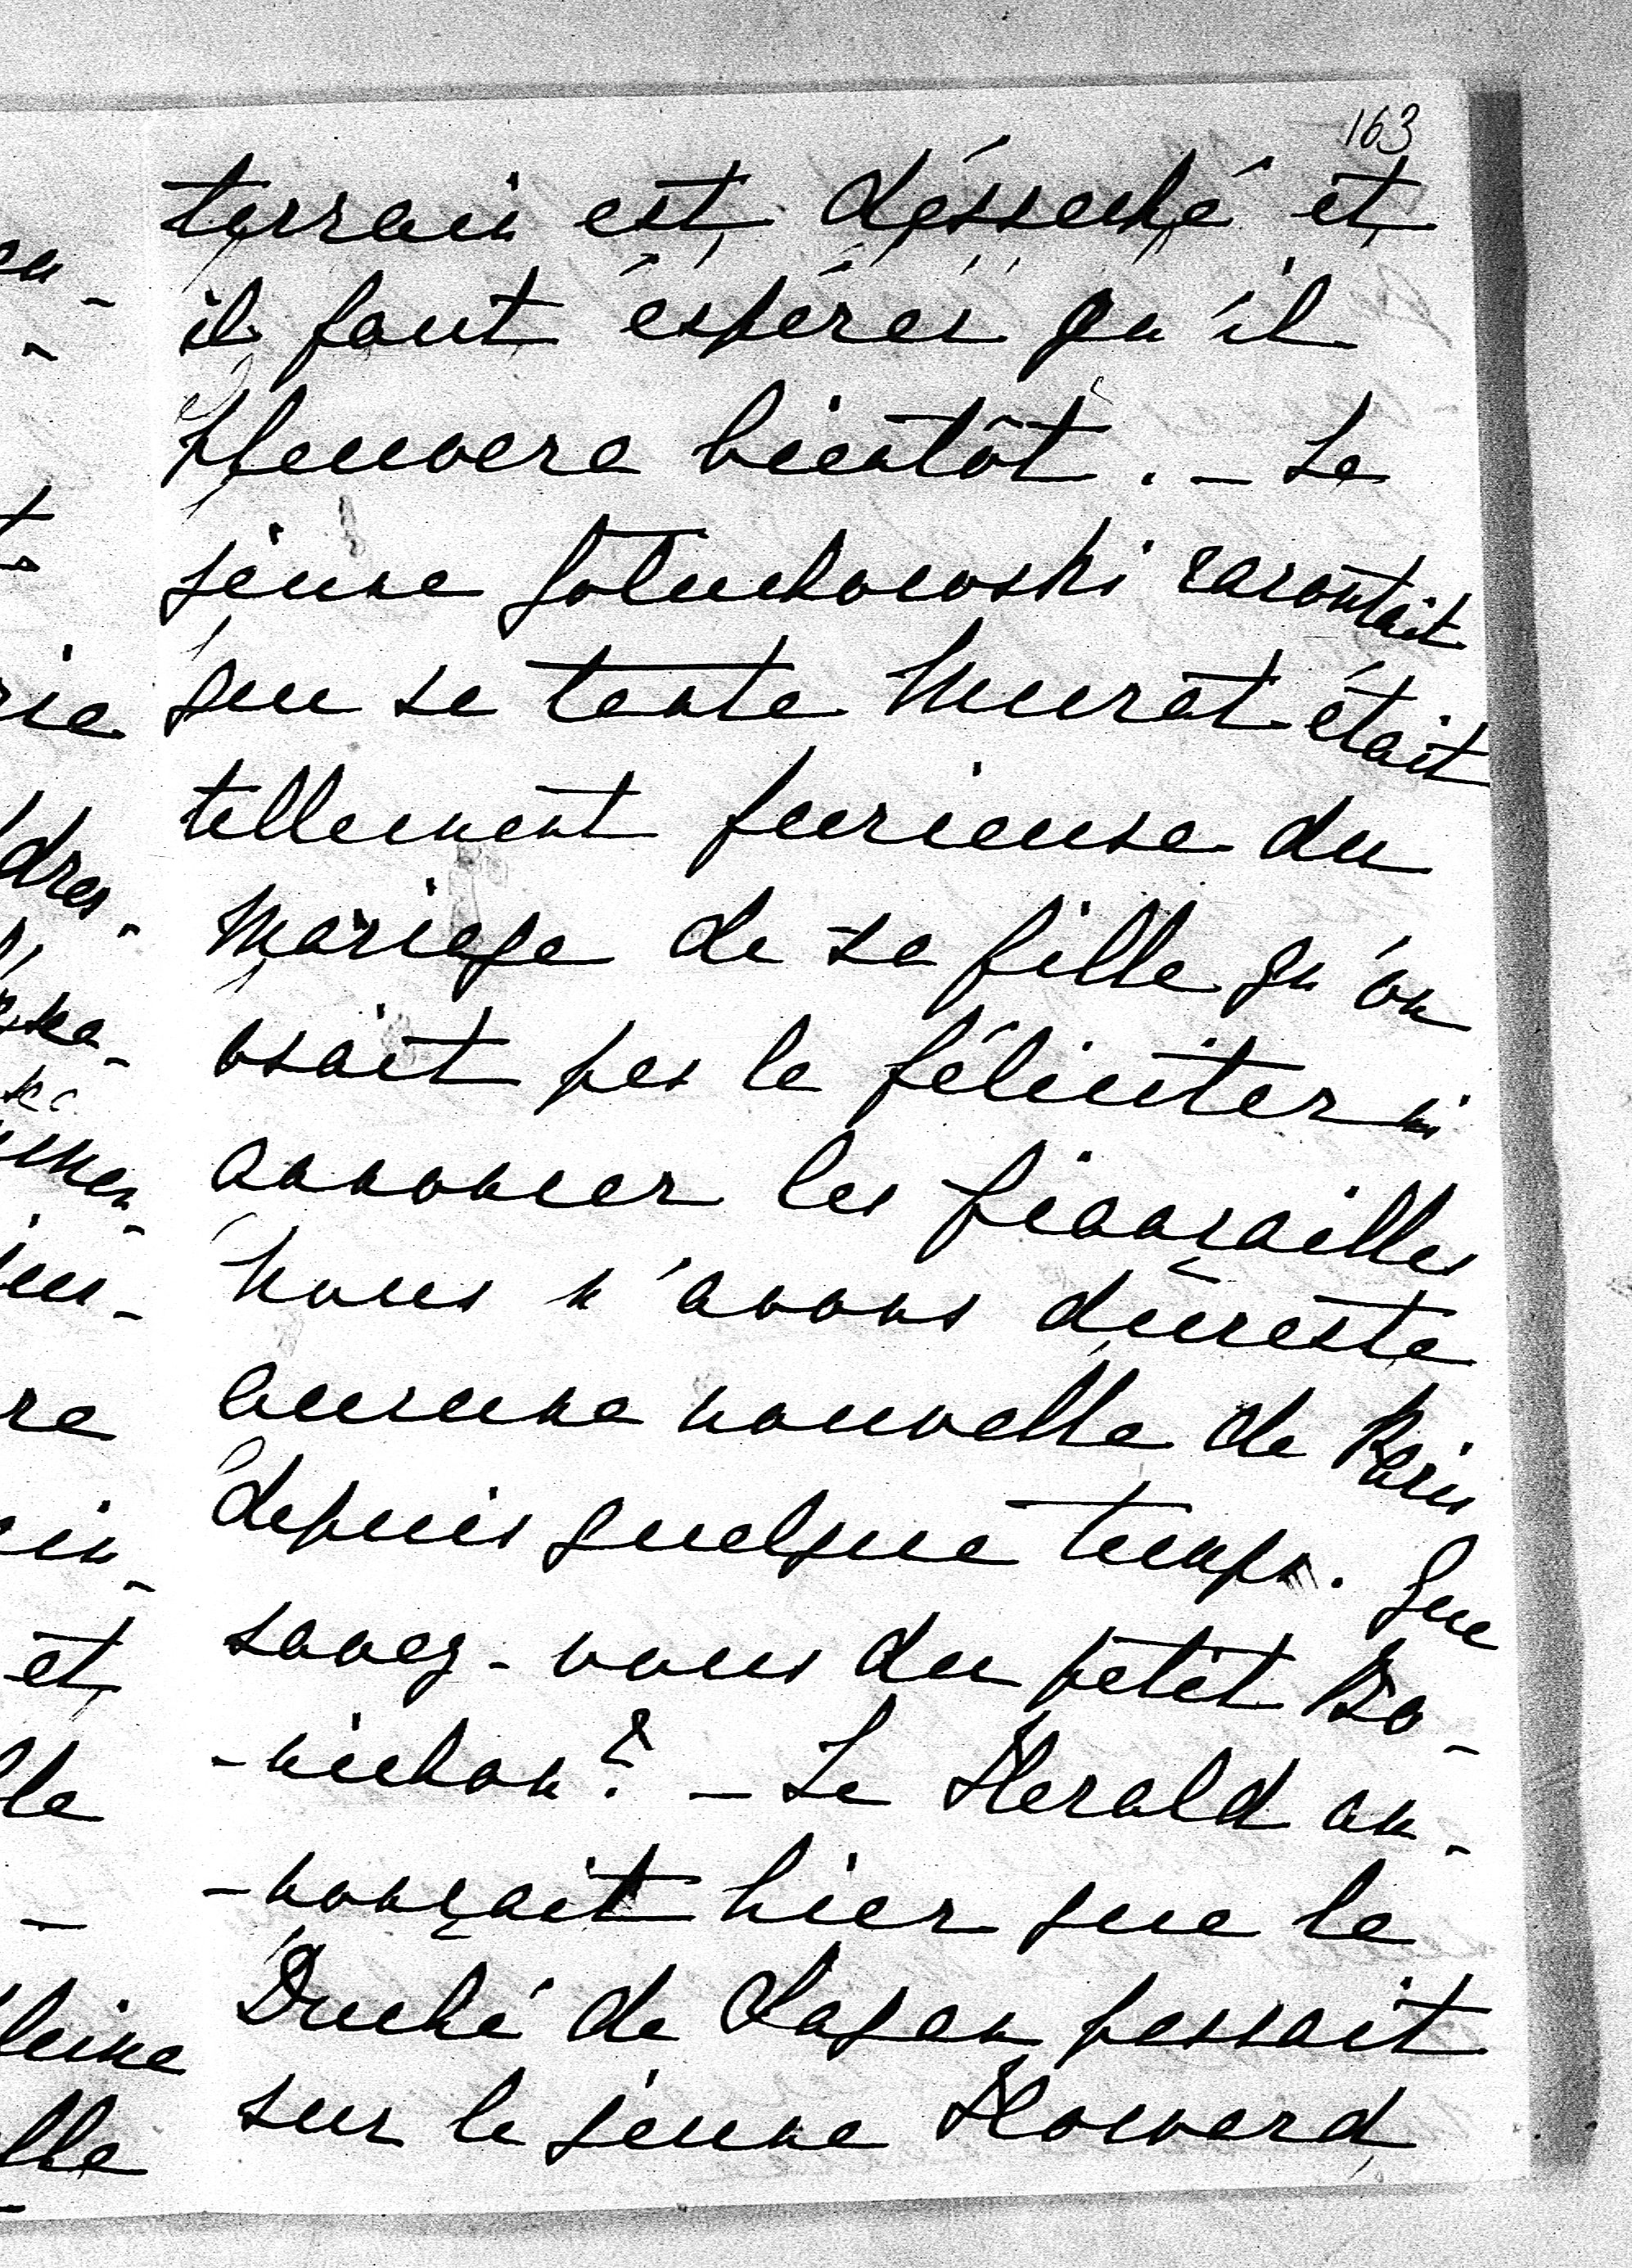 163
terrain est désseché et
il faut éspérer qu'il
pleuvera bientôt. _ Le
jeune Gotuchowski racontait
que sa tante Murat était
tellement furieuse du
mariage de sa fille qu'on
osait pas le féliciter ni
annoncer les fiançailles
Nous n'avons dureste
aucune nouvelle de Paris
depuis quelque temps. Que
savez-vous du petit Bo-
-nichon? _ Le Herald an-
-nonçait hier que le
Duché de Sagan passait
sur le jeune Howard